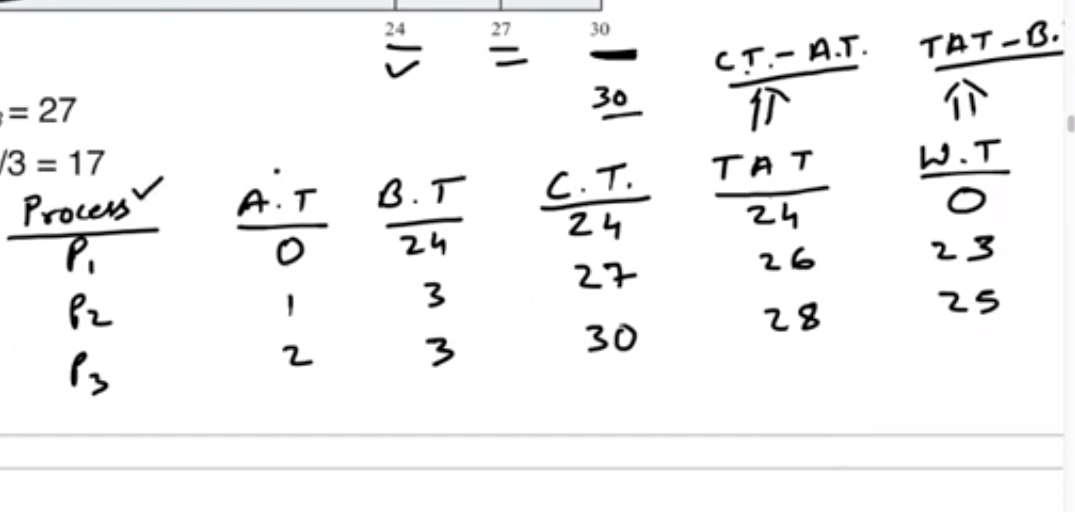 24 27 30
30
C.T. - A.T. TAT - B.
= 27
/3 = 17
Process A.T B.T C.T. TAT W.T
P1 0 24 24 24 0
P2 1 3 27 26 23
P3 2 3 30 28 25